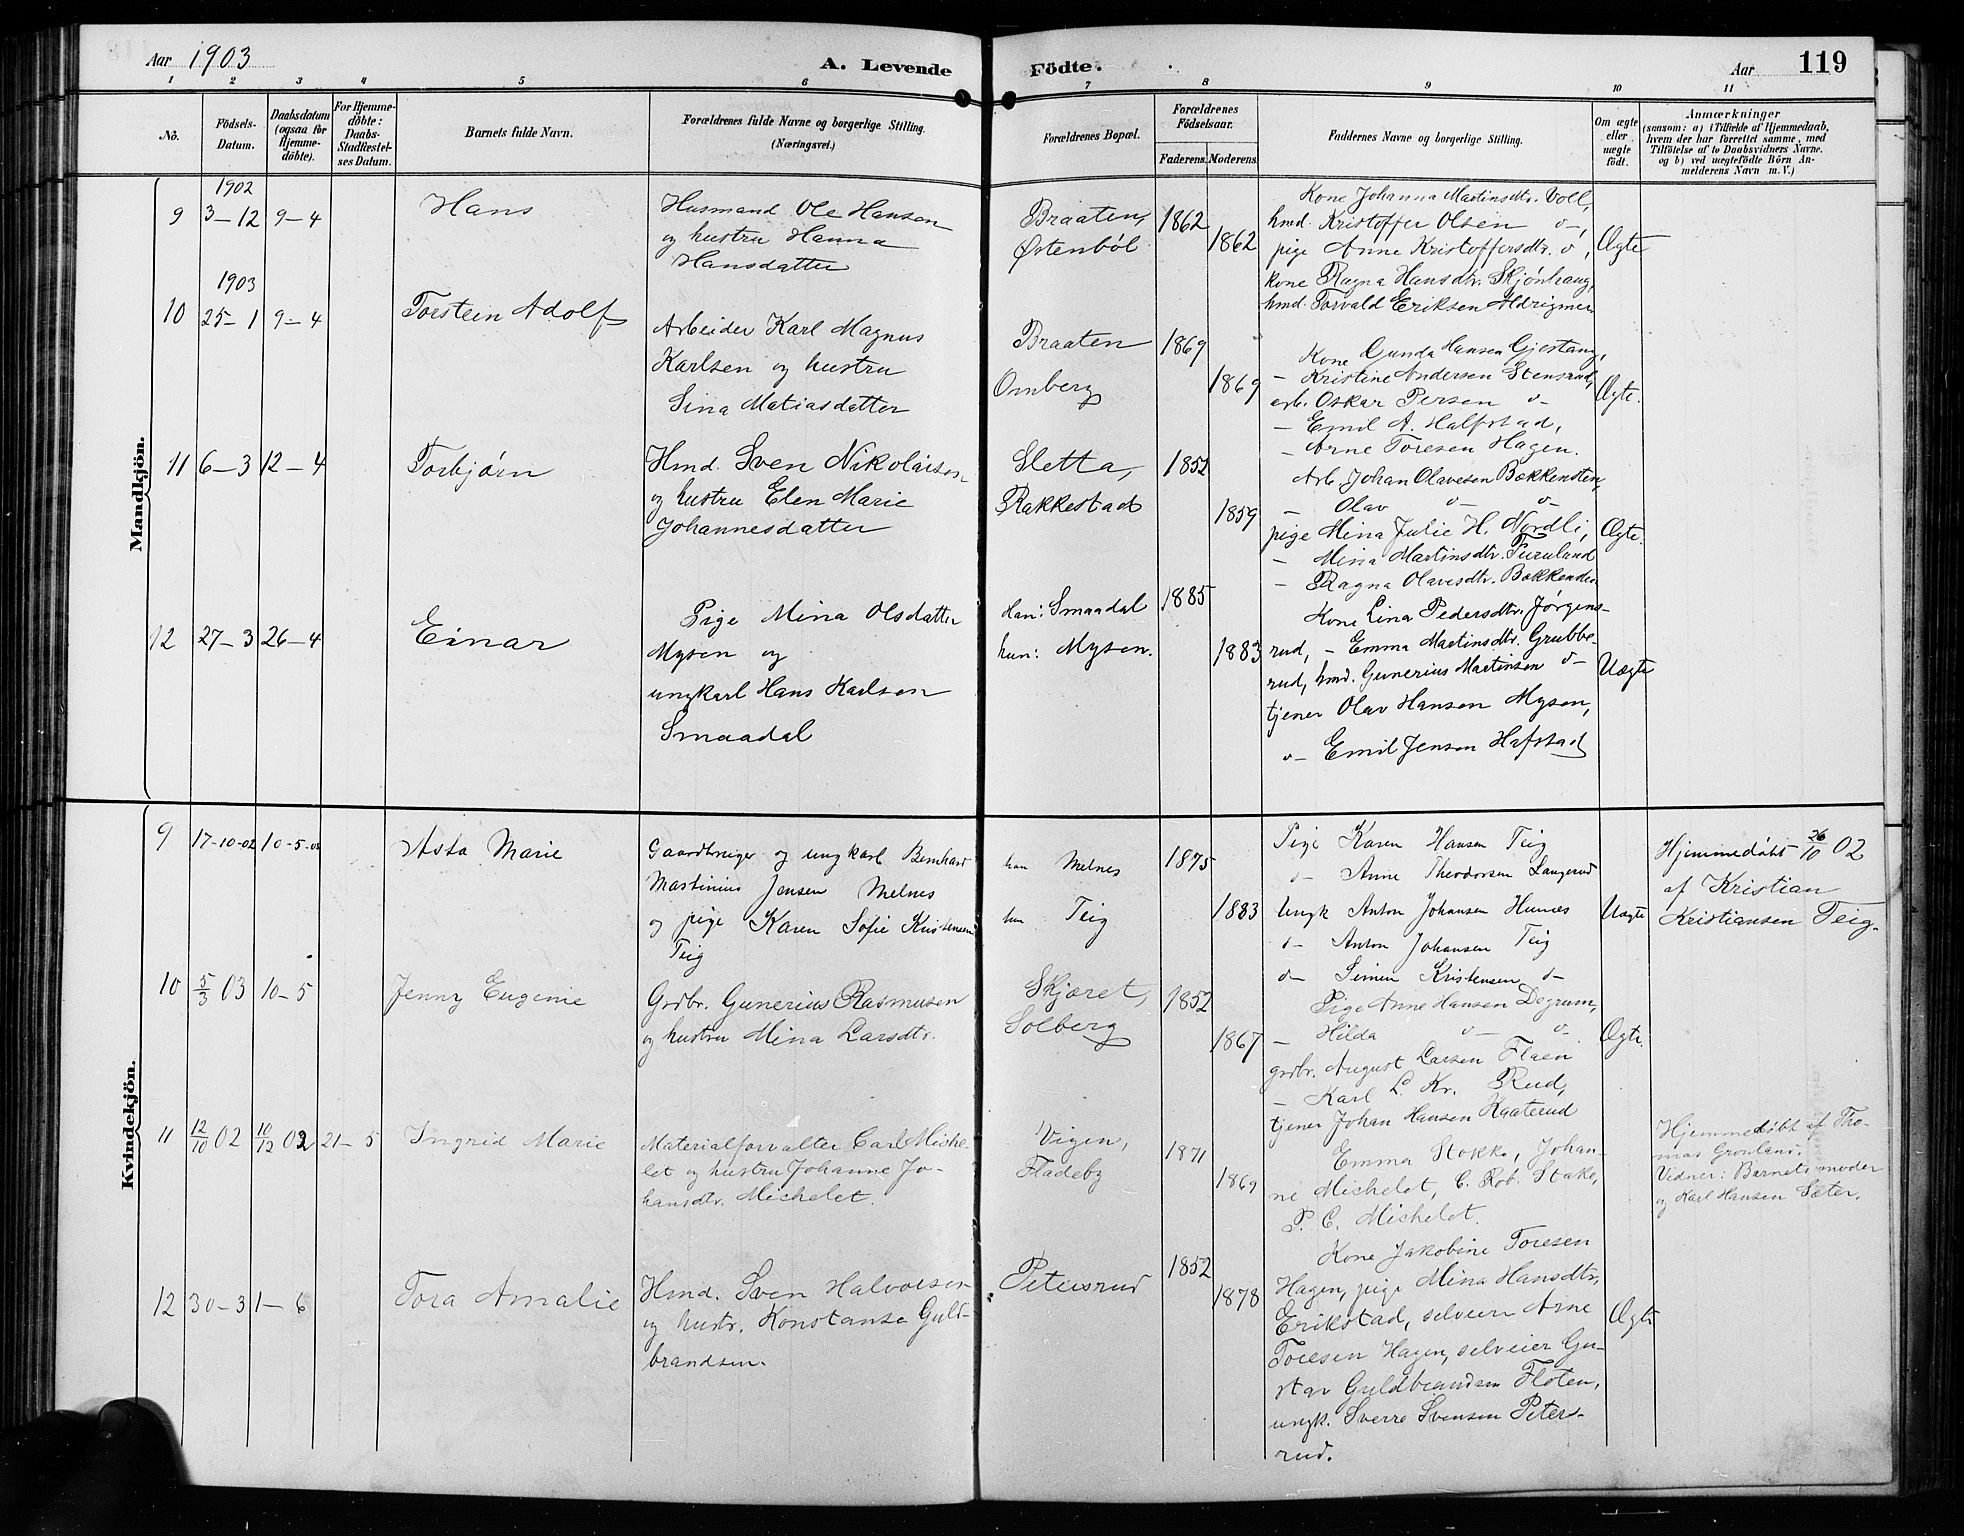 Aar 1903
A. Levende
Födte.
Aar
119
1 2 3 4 5 6 7 8 9 10 11
No.
Födsels-
Datum.
Daabsdatum
(ogsaa for
Hjemme-
döbte).
For Hjemme-
döbte:
Daabs-
Stadfæstel-
ses Datum.
Barnets fulde Navn.
Forældrenes fulde Navne og borgerlige Stilling.
(Næringsvei.)
Forældrenes Bopæl.
Forældrenes
Födselsaar.
Faderens.
Moderens.
Faddernes Navne og borgerlige Stilling.
Om ægte
eller
uægte
födt.
Anmærkninger
(saasom: a) i Tilfælde af Hjemmedaab,
hvem der har forrettet samme, med
Tilföielse af to Daabsvidners Navne,
og b) ved uegtefödte Börn An-
melderens Navn m. V.)
Mandkjön.
1902
9 3-12 9-4
Hans
Husmand Ole Hansen
og hustru Hanna
Hansdatter
Braaten,
Østenböl
1862
1862
Kone Johanna Martinsdtr. Voll,
hmd. Kristoffer Olsen o-,
pige Anne Kristoffersdtr. o,
kone Ragna Hansdtr. Skjönhaug,
hmd. Torvald Eriksen Aldrigmer
Ægte
1903
10 25-1 9-4
Torstein Adolf
Arbeider Karl Magnus
Karlsen og hustru
Sina Matiasdatter
Braaten
Omberg
1869
1869
Kone Gunda Hansen Gjestang,
- Kristine Andersen Stensrud,
arb. Oskar Persen o-
- Emil A. Halfstad,
- Arne Toresen Hagen.
Ægte.
11 6-3 12-4
Torbjørn
Hmd. Sven Nikolaisen
og hustru Elen Marie
Johannesdatter
Sletta,
Rakkestad
1852
1859
Arb. Johan Olavesen Bækkensten,
- Olav o- o-
pige Mina Julie H. Nordli,
- Mina Martinsdtr. Furulund
- Ragna Olavesdtr. Bækkensten
Ægte.
12 27-3 26-4
Einar
Pige Mina Olsdatter
Mysen og
ungkarl Hans Karlsen
Smaadal
han: Smaadal
hun: Mysen.
1885
1883
Kone Lina Pedersdtr. Jørgens-
rud, - Emma Martinsdtr. Grubbe-
rud, hmd. Gunerius Martinsen o-
tjener Olav Hansen Mysen,
o- Emil Jensen Hafstad
Uægte
Kvindekjön.
9 17-10-02 10-5-03
Asta Marie
Gaardbruger og ungkarl Bernhard
Martinius Jensen Melnes
og pige Karen Sofie Kristensen
Teig
han Melnes
hun Teig
1875
1883
Pige Karen Hansen Teig
o- Anne Theodorsen Langerud
Ungk Anton Johansen Humes
o- Anton Johansen Teig
o- Simen Kristensen o-
Uægte
Hjemmedöbt 26/10 02
af Kristian
Kristiansen Teig.
10 5/3 03 10-5
Jenny Eugenie
Grdbr. Gunerius Rasmusen
og hustru Mina Larsdtr.
Skjæret,
Solberg
1852
1867
Pige Anne Hansen Degrum,
- Hilda o- o-
grdbr. August Larsen Flaen
- Karl L. Kr. Rud,
tjener Johan Hansen Kaaterud
Ægte.
11 12/10 02 10/12 02 21-5
Ingrid Marie
Materialforvalter Carl Miche-
let og hustru Johanne Jo-
hansdtr. Michelet.
Vigen,
Fladeby
1871
1869
Emma Stokke, Johan-
ne Michelet, C. Rob. Stake,
P. C. Michelet.
Hjemmedöbt af Tho-
mas Grønlund.
Vidner: Barnets moder
og Karl Hansen Sæter.
12 30-3 1-6
Tora Amalie
Hmd. Sven Halvorsen
og hustr. Konstanse Guld-
brandsen.
Petersrud
1852
1878
Kone Jakobine Toresen
Hagen, pige Mina Hansdtr.
Erikstad, selveier Arne
Toresen Hagen, selveier Gu-
stav Guldbrandsen Floten,
ungk. Sverre Svensen Peters-
rud.
Ægte